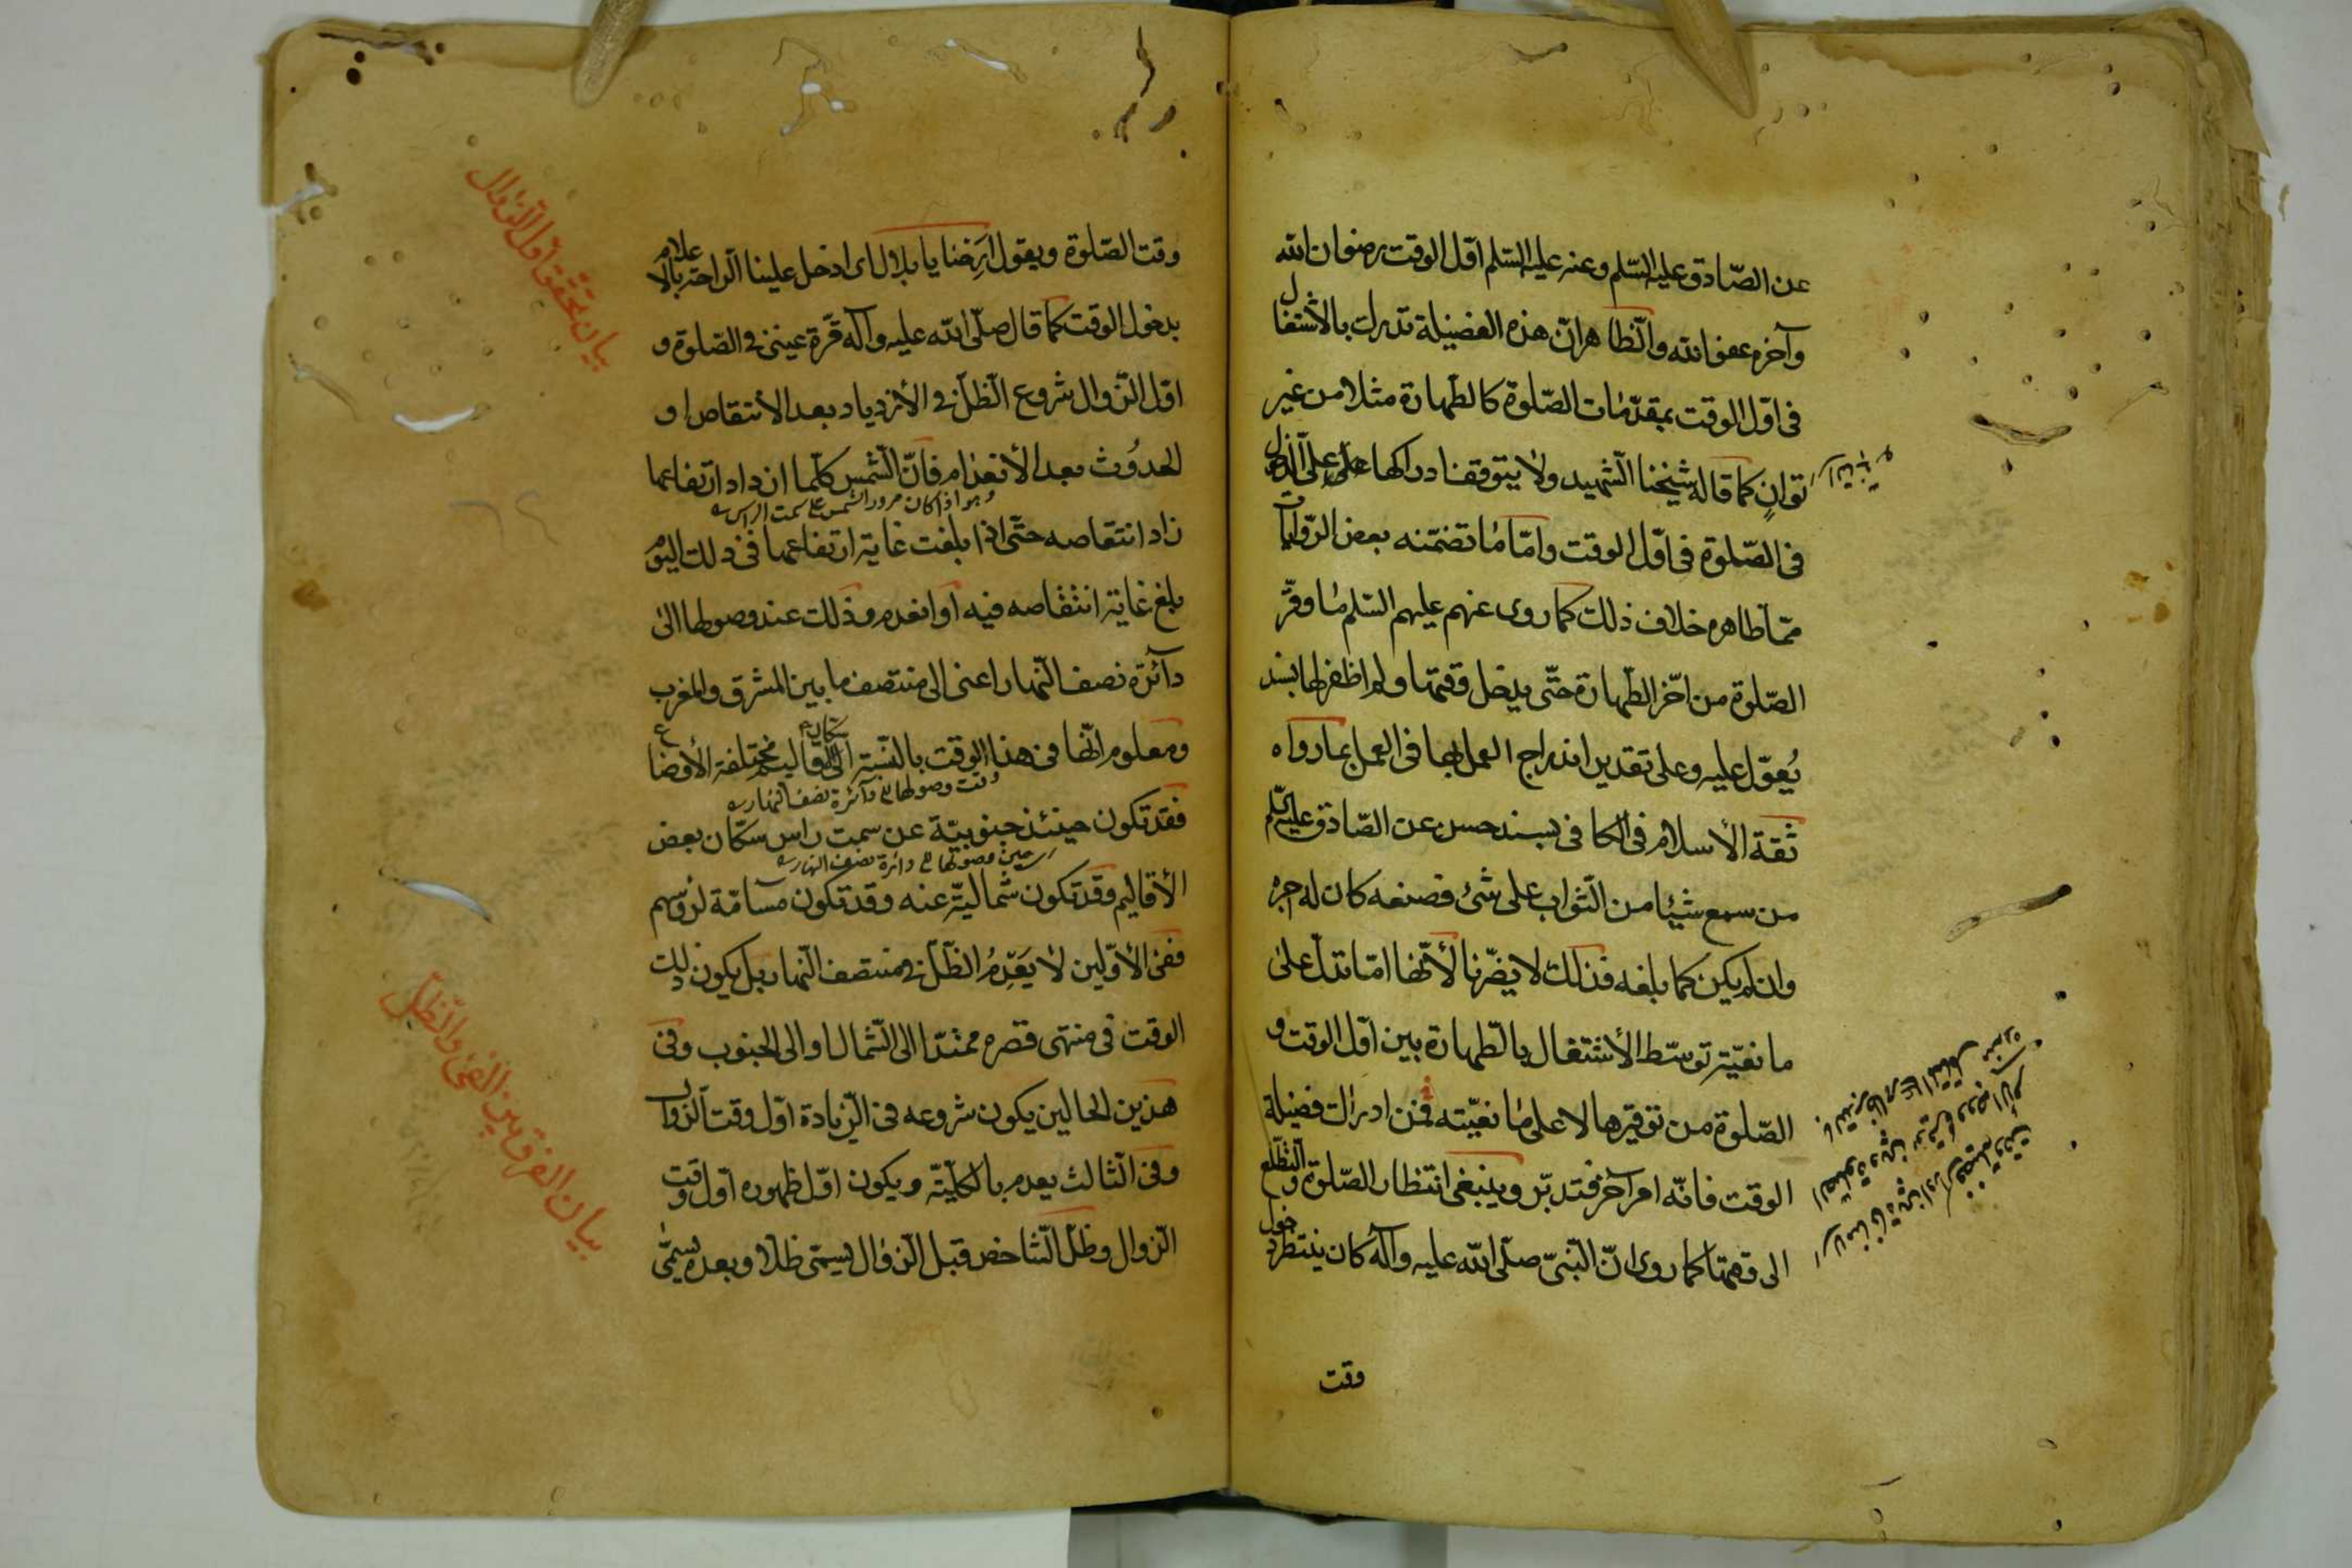 عن الصّادق عليه السّلم وعنه عليه السّلم اوّل الوقت رضوان الله
وآخره عفو الله والظّاهر انّ هذه الفضيلة تدرك بالأشتغال
فى اوّل الوقت بمقدّمات الصّلوة كالطّهارة مثلا من غير
توانٍ كما قاله شيخنا الشّهيد ولا يتوقف ادراكها على الدّخول
فى الصّلوة فى اوّل الوقت وامّا ما تضمّنه بعض الرّوايات
ممّا ظاهره خلاف ذلك كما روى عنهم عليهم السّلم ما وقّر
الصّلوة من اخّر الطّهارة حتّى يدخل وقتها ولم اظفر لها بسند
يُعوّل عليه وعلى تقدير اندراج العمل بها فى العمل بما رواه
ثقة الأسلام فى الكافى بسند حسن عن الصّادق عليه السّلم
من سمع شيئا من الثّواب على شئ فصنعه كان له اجره
وان لم يكن كما بلغه فذلك لا يضرّنا لأنّها امّا تدلّ على
ما نعيّته توسّط الأشتغال بالطّهارة بين اوّل الوقت و
الصّلوة من توقيرها لا على ما نعيّته فمن ادراك فضيلة
الوقت فانّه امر آخر فتدبّر وينبغى انتظار الصّلوة والتّطلّع
الى وقتها كما روى انّ النّبىّ صلّى الله عليه وآله كان ينتظر دخول
وقت
وقت الصّلوة ويقول ارِحنا يا بلال اى ادخل علينا الرّاحة بالاعلام
بدخول الوقت كما قال صلّى الله عليه وآله قرّة عينى فى الصّلوة و
اوّل الزّوال شروع الظّلّ فى الأزدياد بعد الأنتقاص او
الحدُوث بعد الأنعدام فانّ الشّمس كلّما ازداد ارتفاعها
وهو اذا كان مرور الشمس على سمت الراس
زاد انتقاصه حتّى اذا بلغت غاية ارتفاعها فى ذلك اليوم
بلغ غاية انتقاصه فيه او انعدم وذلك عند وصولها الى
دآئرة نصف النّهار اعنى الى منتصف ما بين المشرق والمغرب
ومعلوم انّها فى هذا الوقت بالنّسبة الى سكان الأقاليم مختلفة الأوضاع
وقت وصولها الى دآئرة نصف النهار
فقد تكون حينئذ جنوبيّة عن سمت راس سكّان بعض
حين وصولها الى دائرة نصف النهار
الأقاليم وقد تكون شماليّة عنه وقد تكون مسامّة لرؤسهم
ففى الأوّلين لا يَعدِمُ الظّلّ فى منتصف النّهار بل يكون ذلك
الوقت فى منتهى قصره ممتدّا الى الشّمال او الى الجنوب وفى
هذين الحالين يكون شروعه فى الزّيادة اوّل وقت الزّوال
وفى الثّالث يعدم بالكلّيّة ويكون اوّل ظهوره اوّل وقت
الزّوال وظلّ الشّاخص قبل الزّوال يسمّى ظلّا وبعده يسمّى
بيان تحقق اوّل الزوال
بيان الفرق بين الفئ والظل